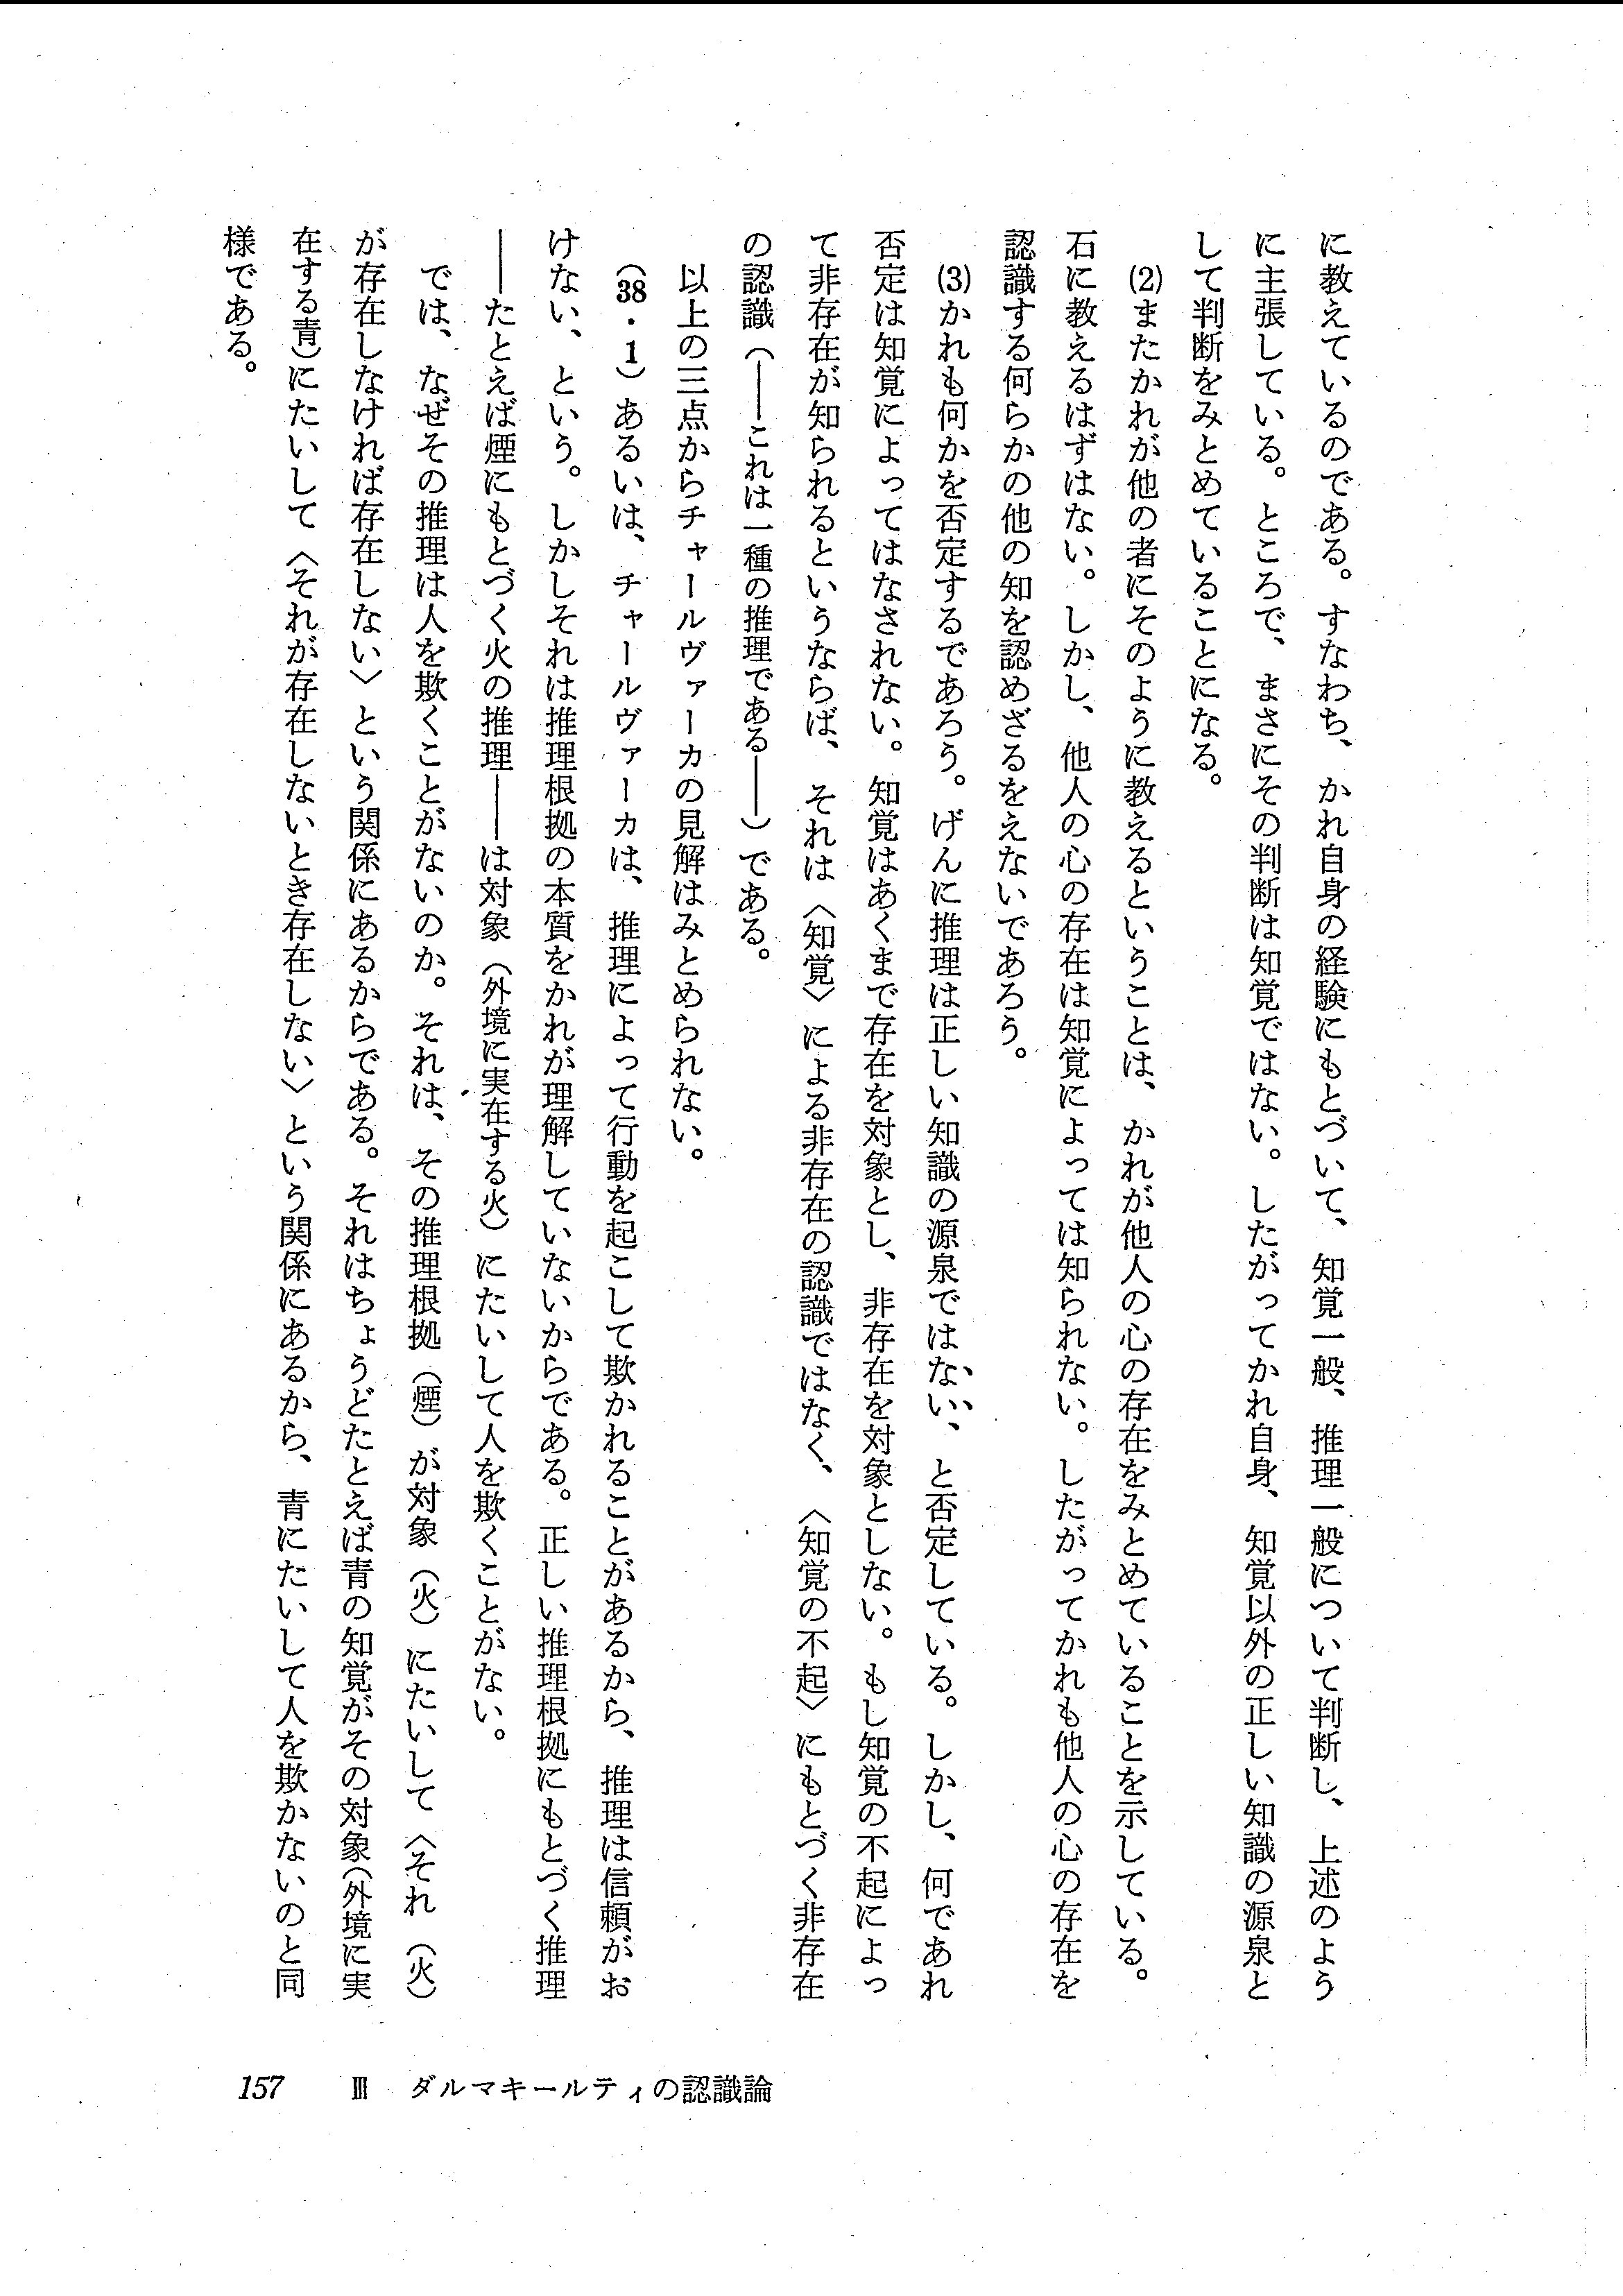 に教えているのである。すなわち、かれ自身の経験にもとづいて、知覚一般、推理一般について判断し、上述のよう
に主張している。ところで、まさにその判断は知覚ではない。したがってかれ自身、知覚以外の正しい知識の源泉と
して判断をみとめていることになる。
(2)またかれが他の者にそのように教えるということは、かれが他人の心の存在をみとめていることを示している。
石に教えるはずはない。しかし、他人の心の存在は知覚によっては知られない。したがってかれも他人の心の存在を
認識する何らかの他の知を認めざるをえないであろう。
(3)かれも何かを否定するであろう。げんに推理は正しい知識の源泉ではない、と否定している。しかし、何であれ
否定は知覚によってはなされない。知覚はあくまで存在を対象とし、非存在を対象としない。もし知覚の不起によっ
て非存在が知られるというならば、それは〈知覚〉による非存在の認識ではなく、〈知覚の不起〉にもとづく非存在
の認識（――これは一種の推理である――）である。
以上の三点からチャールヴァーカの見解はみとめられない。
（38・1）あるいは、チャールヴァーカは、推理によって行動を起こして欺かれることがあるから、推理は信頼がお
けない、という。しかしそれは推理根拠の本質をかれが理解していないからである。正しい推理根拠にもとづく推理
――たとえば煙にもとづく火の推理――は対象（外境に実在する火）にたいして人を欺くことがない。
では、なぜその推理は人を欺くことがないのか。それは、その推理根拠（煙）が対象（火）にたいして〈それ（火）
が存在しなければ存在しない〉という関係にあるからである。それはちょうどたとえば青の知覚がその対象（外境に実
在する青）にたいして〈それが存在しないとき存在しない〉という関係にあるから、青にたいして人を欺かないのと同
様である。
157 Ⅲ ダルマキールティの認識論